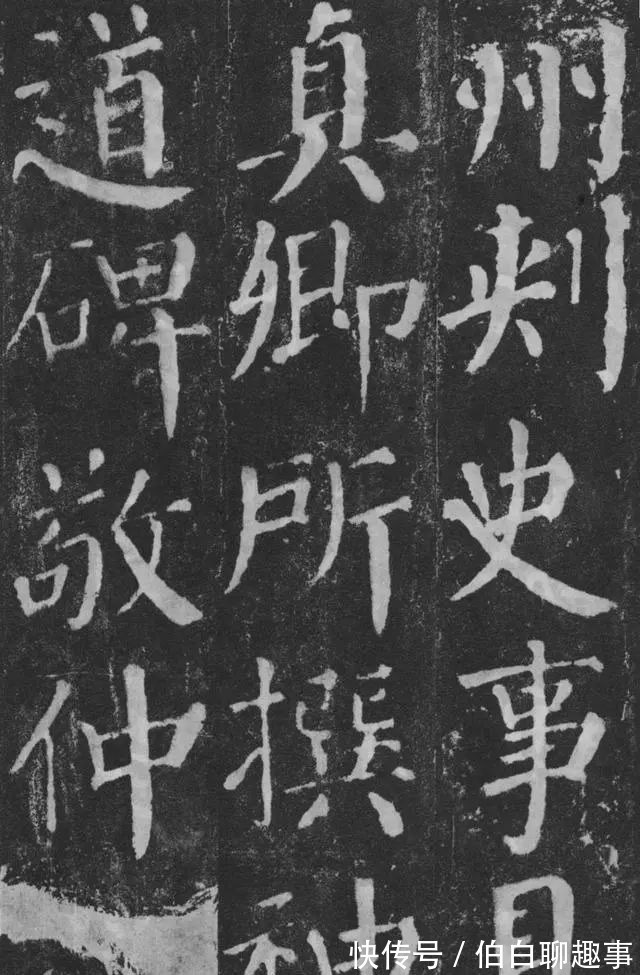 州刺史事具
真卿所撰神
道碑敬仲
快传号/伯白聊趣事